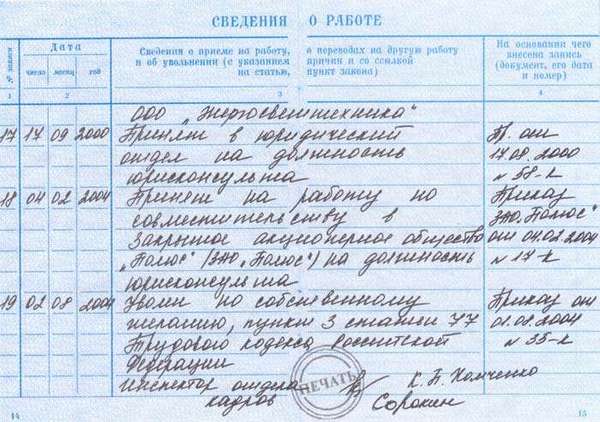 СВЕДЕНИЯ О РАБОТЕ
№ записи
Дата
число месяц год
Сведения о приеме на работу, о переводах на другую работу
и об увольнении (с указанием причин и со ссылкой
на статью, пункт закона)
На основании чего
внесена запись
(документ, его дата
и номер)
1 2 3 4
ООО „Энергосветтехника“
17 17 09 2000 Принят в юридический Пр. от
отдел на должность 17.08.2000
юрисконсульта № 58-к
18 04 02 2004 Принят на работу по Приказ
совместительству в ЗАО „Полюс“
Закрытое акционерное общество от 04.02.2004
„Полюс“ (ЗАО „Полюс“) на должность № 17-к
юрисконсульта
19 02 08 2004 Уволен по собственному Приказ от
желанию, пункт 3 статьи 77 01.08.2004
Трудового кодекса Российской № 35-к
Федерации
Инспектор отдела К. Н. Хомченко
кадров Сорокин
ПЕЧАТЬ
14 15